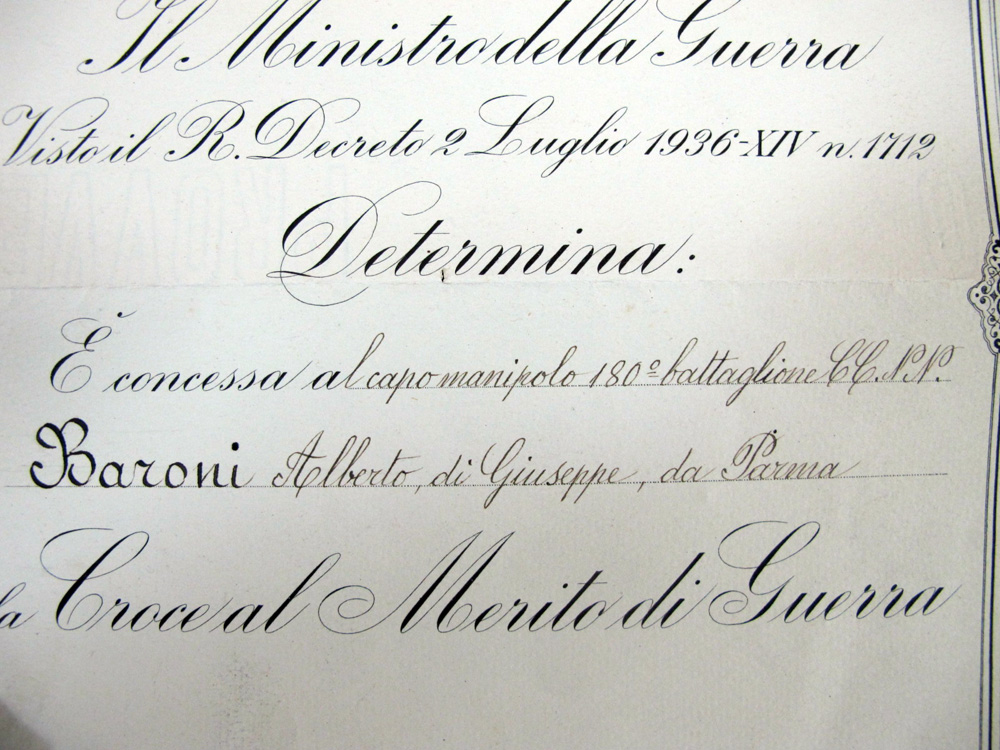 Il Ministro della Guerra
Visto il R. Decreto 2 Luglio 1936-XIV n. 1712
Determina:
È concessa al capo manipolo 180º battaglione CC.NN.
Baroni Alberto, di Giuseppe, da Parma
la Croce al Merito di Guerra